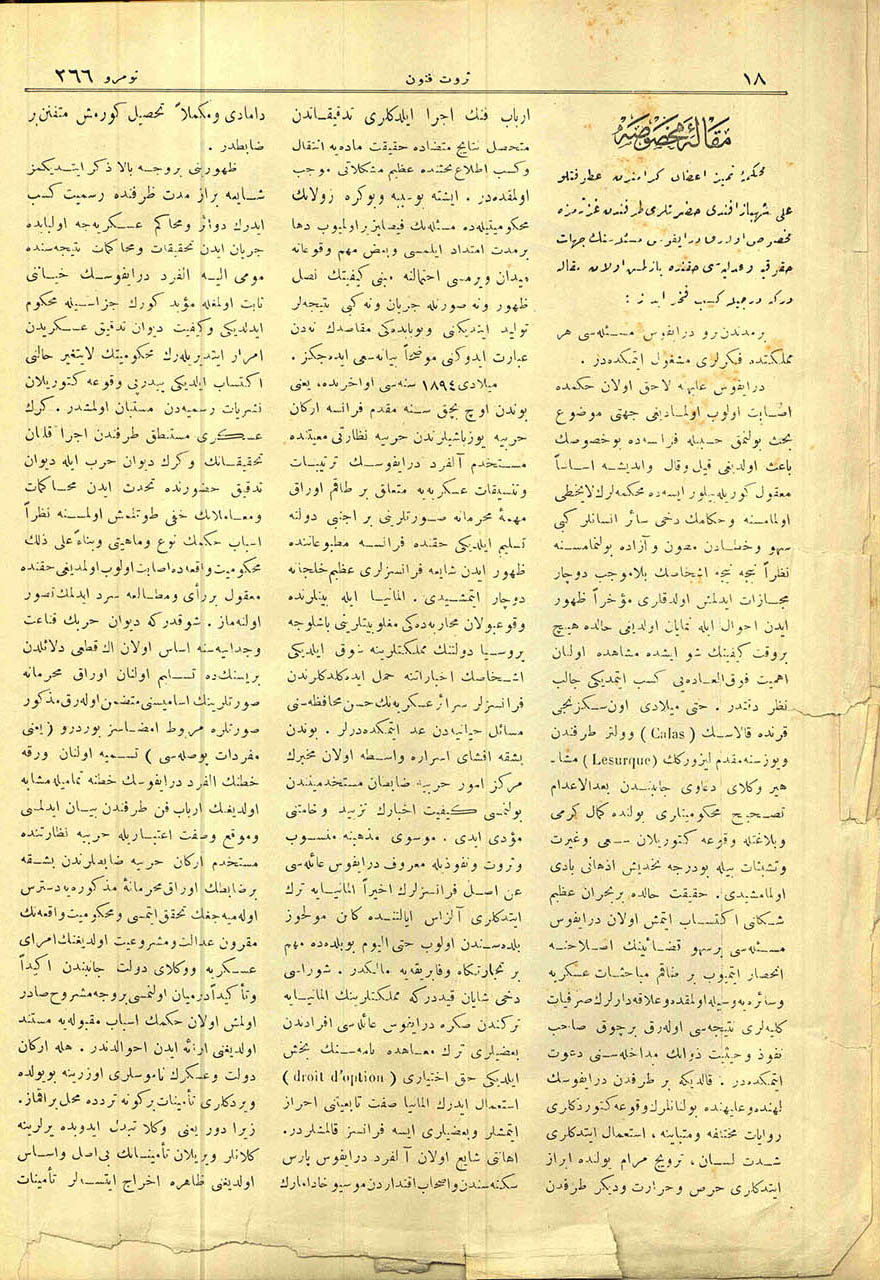 ١٨
ثروت فنون
نومرو ٣٦٦
مقالهٔ مخصوصه
محكمهٔ تمييز اعضاى كرامندن عطوفتلو
على شهباز افندى حضرتلرى طرفندن غزته‌مزه
مخصوص اوله‌رق درايفوس مسئله‌سنك جهات
حقوقيه وعدليه‌سى حقنده يازلمش اولان مقاله
درج كسب فخر ايدرز :
بر مدتدنبرو درايفوس مسئله‌سى هر
مملكتده فكرلرى مشغول ايتمكده‌در .
درايفوس عليهنه لاحق اولان حكمده
اصابت اولوب اولمديغى جهتى موضوع
بحث بولنمق حسبيله فرانسه‌ده بوخصوصك
باعث اولديغى قيل وقال وانديشه اساساً
معقول كوريله‌بيلور ايسه‌ده محكمه‌لرك لايخطى
اولمامسنه وحكامك دخى سائر انسانلر كبى
سهو وخطادن مصون وآزاده بولنمامسنه
نظراً نيجه نيجه اشخاصك بلاموجب دوچار
مجازات ايدلمش اولدقلرى مؤخراً ظهور
ايدن احوال ايله نمايان اولديغى حالده هيچ
بروقت كيفيتك شو ايشده مشاهده اولنان
اهميت فوق‌العاده‌يى كسب ايتمديكى جالب
نظر دقتدر . حتى ميلادى اون‌سكزنجى
قرنده قالاسك (Calas) وولتر طرفندن
ويوز سنه مقدم ليزورقك (Lesurque) مشا-
هير وكلاى دعاوى جانبندن بعدالاعدام
تصحيح محكوميتلرى يولنده كمال كرمى
وبلاغتله وقوعه كتوريلان سعى وغيرت
وتشبثات بيله بودرجه تخديش اذهانى بادى
اولمامشيدى . حقيقت حالده بر بحران عظيم
شكلنى اكتساب ايتمش اولان درايفوس
مسئله‌سى بر سهو قضائينك اصلاحنه
انحصار ايتميوب بر طاقم مباحثات عسكريه
وسائره‌يه وسيله اولمقده وعلاقه‌دارلرك صرفيات
كليه‌لرى نتيجه‌سى اوله‌رق برچوق صاحب
نفوذ وحيثيت ذواتك مداخله‌سنى دعوت
ايتمكده‌در . قالديكه بر طرفدن درايفوسك
لهنده وعليهنده بولنانلرك وقوعه كتوردكلرى
روايات مختلفه ومتباينه ، استعمال ايتدكلرى
شدت لسان ، ترويج مرام يولنده ابراز
ايتدكلرى حرص وحرارت وديكر طرفدن
ارباب فنك اجرا ايلدكلرى تدقيقاتدن
متحصل نتايج متضاده حقيقت ماده‌يه انتقال
وكسب اطلاع بحثنده عظيم مشكلاتى موجب
اولمقده‌در . ايشته بوسببه وبوكره زولانك
محكوميتيله‌ده مسئله‌نك فيصلپذير اولميوب دها
برمدت امتداد ايلمسى وبعض مهم وقوعاته
ميدان ويرمسى احتمالنه مبنى كيفيتك نصل
ظهور ونه صورتله جريان ونه كبى نتيجه‌لر
توليد ايتديكنى وبوبابده‌كى مقاصدك نه‌دن
عبارت ايدوكنى موضحاً بيانه سعى ايده‌جكز .
ميلادى ١٨٩٤ سنه‌سى اواخرنده ، يعنى
بوندن اوچ بچق سنه مقدم فرانسه اركان
حربيه يوزباشيلرندن حربيه نظارتى معيتنده
مستخدم آلفرد درايفوسك ترتيبات
وتنسيقات عسكريه‌يه متعلق بر طاقم اوراق
مهمهٔ محرمانه صورتلرينى بر اجنبى دولته
تسليم ايلديكى حقنده فرانسه مطبوعاتنده
ظهور ايدن شايعه فرانسزلرى عظيم خلجانه
دوچار ايتمشيدى . المانيا ايله بينلرنده
وقوعبولان محاربه‌ده‌كى مغلوبيتلرينى باشلوجه
پروسيا دولتنك مملكتلرينه سوق ايلديكى
اشخاصك اخباراتنه حمل ايده‌كلدكلرندن
فرانسزلر سرائر عسكريه‌نك حسن محافظه‌سنى
مسائل حياتيه‌دن عد ايتمكده‌درلر . بوندن
بشقه افشاى اسراره واسطه اولان مخبرك
مركز امور حربيه ضابطان مستخدميندن
بولنمسى كيفيت اخبارك تزييد وخامتنى
مؤدى ايدى . موسوى مذهبنه منسوب
وثروت ونفوذيله معروف درايفوس عائله‌سى
عن اصل فرانسزلرك اخيراً المانيايه ترك
ايتدكلرى آلزاس ايالتنده كائن مولهوز
بلده‌سندن اولوب حتى اليوم بوبلده‌ده مهم
بر تجارتكاه وفابريقه‌يه مالكدر . شوراسى
دخى شايان قيددركه مملكتلرينك المانيايه
تركندن صكره درايفوس عائله‌سى افرادندن
بعضيلرى ترك معاهده نامه‌سنك بخش
ايلديكى حق اختيارى (droit d'option)
استعمال ايدرك المانيا صفت تابعيتنى احراز
ايتمشلر وبعضيلرى ايسه فرانسز قالمشلردر .
اهانتى شايع اولان آلفرد درايفوس پارس
سكنه‌سندن واصحاب اقتداردن موسيو خادامارك
دامادى ومكملاً تحصيل كورمش متفنن بر
ضابطدر .
ظهورينى بروجه بالا ذكر ايتديكمز
شايعه براز مدت ظرفنده رسميت كسب
ايدرك دوائر ومحاكم عسكريه‌جه اولبابده
جريان ايدن تحقيقات ومحاكمات نتيجه‌سنده
مومى اليه الفرد درايفوسك خيانتى
ثابت اولمغله مؤبد كورك جزاسيله محكوم
ايدلديكى وكيفيت ديوان تدقيق عسكريدن
امرار ايتديريله‌رك محكوميتك لايتغير حالنى
اكتساب ايلديكى پيدرپى وقوعه كتوريلان
نشريات رسميه‌دن مستبان اولمشدر . كرك
عسكرى مستنطق طرفندن اجرا قلنان
تحقيقاتك وكرك ديوان حرب ايله ديوان
تدقيق حضورنده تحدث ايدن محاكمات
ومعاملاتك خفى طوتلمش اولمسنه نظراً
اسباب حكمك نوع وماهيتى وبناءً على ذلك
محكوميت واقعه‌ده اصابت اولوب اولمديغى حقنده
معقول بر رأى ومطالعه سرد ايدلمك تصور
اولنه‌ماز . شوقدركه ديوان حربك قناعت
وجدانيه‌سنه اساس اولان اك قطعى دلائلدن
بريسنك‌ده تسليم اولنان اوراق محرمانه
صورتلرينك اساميسنى متضمن اوله‌رق مذكور
صورتلره مربوط امضاسز بوردرو (يعنى
مفردات پوصله‌سى) تسميه اولنان ورقه
خطنك الفرد درايفوسك خطنه تماميله مشابه
اولديغنك ارباب فن طرفندن بيان ايدلمسى
وموقع وصفت اعتباريله حربيه نظارتنده
مستخدم اركان حربيه ضابطلرندن بشقه
بر ضابطك اوراق محرمانهٔ مذكوره‌يه دسترس
اوله‌ميه‌جغك تحقق ايتمسى ومحكوميت واقعه‌نك
مقرون عدالت ومشروعيت اولديغنك امراى
عسكريه ووكلاى دولت جانبندن اكيداً
وتأكيداً درميان اولنمسى بروجه مشروح صادر
اولمش اولان حكمك اسباب مقبوله‌يه مستند
اولديغنى ارائه ايدن احوالدندر . هله اركان
دولت وعسكرك ناموسلرى اوزرينه بوبولده
ويردكلرى تأمينات بركونه تردده محل براقماز .
زيرا دور يعنى وكلا تبدل ايدوبده يرلرينه
كلانلر ويريلان تأميناتك بى‌اصل واساس
اولديغنى ظاهره اخراج ايتسه‌لر تأمينات